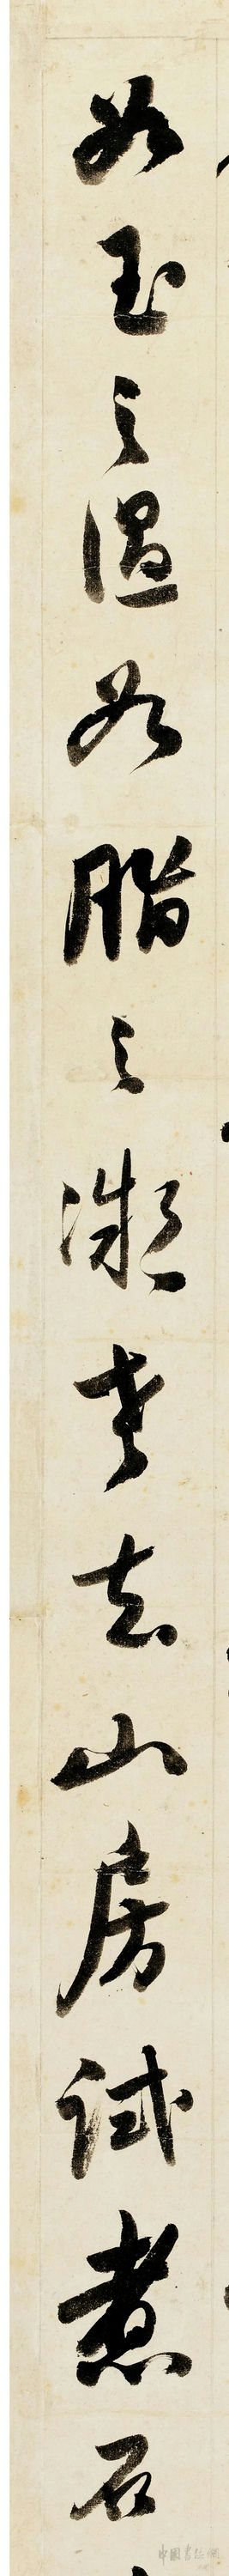 如玉之温如脂之凝老去山房试煮石
中國書法網